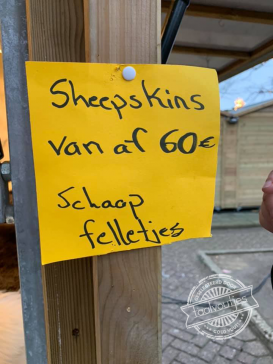 Sheepskins
van af 60€
Schaap
felletjes
Taalvoutjes